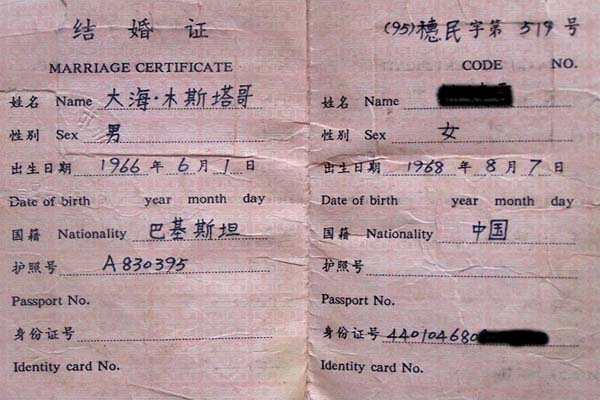 结婚证
MARRIAGE CERTIFICATE
姓名 Name 大海·木斯塔哥
性别 Sex 男
出生日期 1966 年 6 月 1 日
Date of birth year month day
国籍 Nationality 巴基斯坦
护照号 A830395
Passport No.
身份证号
Identity card No.
(95)穗民字第 519 号
CODE NO.
姓名 Name
性别 Sex 女
出生日期 1968 年 8 月 7 日
Date of birth year month day
国籍 Nationality 中国
护照号
Passport No.
身份证号 440104680
Identity card No.